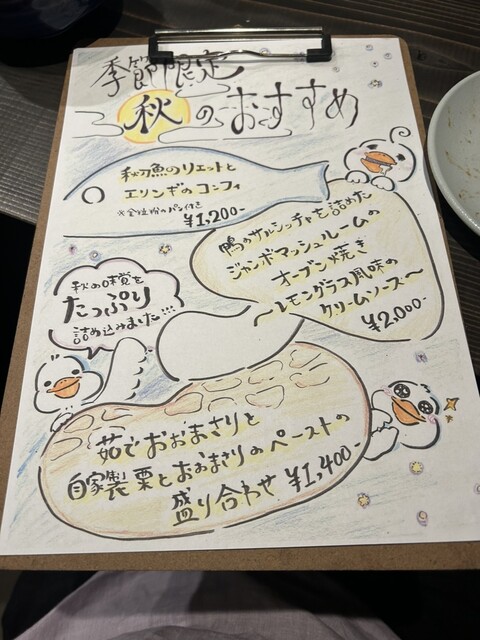 季節限定
秋のおすすめ
秋刀魚のリエットと
エリンギのコンフィ
※全粒粉のパン付き
¥1,200-
鴨のサルシッチャを詰めた
ジャンボマッシュルームの
オーブン焼き
～レモングラス風味の
クリームソース～
¥2,000-
秋の味覚を
たっぷり
詰め込みました!!!
茹でおおまさりと
自家製栗とおおまさりのペーストの
盛り合わせ ¥1,400-